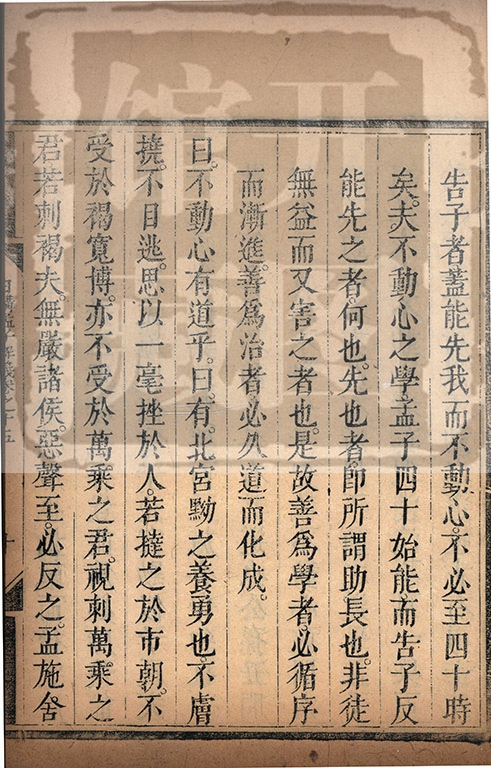 告子者蓋能先我而不動心。不必至四十時
矣。夫不動心之學孟子四十始能而告子反
能先之者。何也。先也者。卽所謂助長也。非徒
無益而又害之者也。是故善爲學者必循序
而漸進。善爲治者必久道而化成。
曰。不動心有道乎。曰。有。北宮黝之養勇也。不膚
撓。不目逃。思以一毫挫於人。若撻之於市朝。不
受於褐寬博。亦不受於萬乘之君。視刺萬乘之
君若刺褐夫。無嚴諸侯。惡聲至。必反之。孟施舍